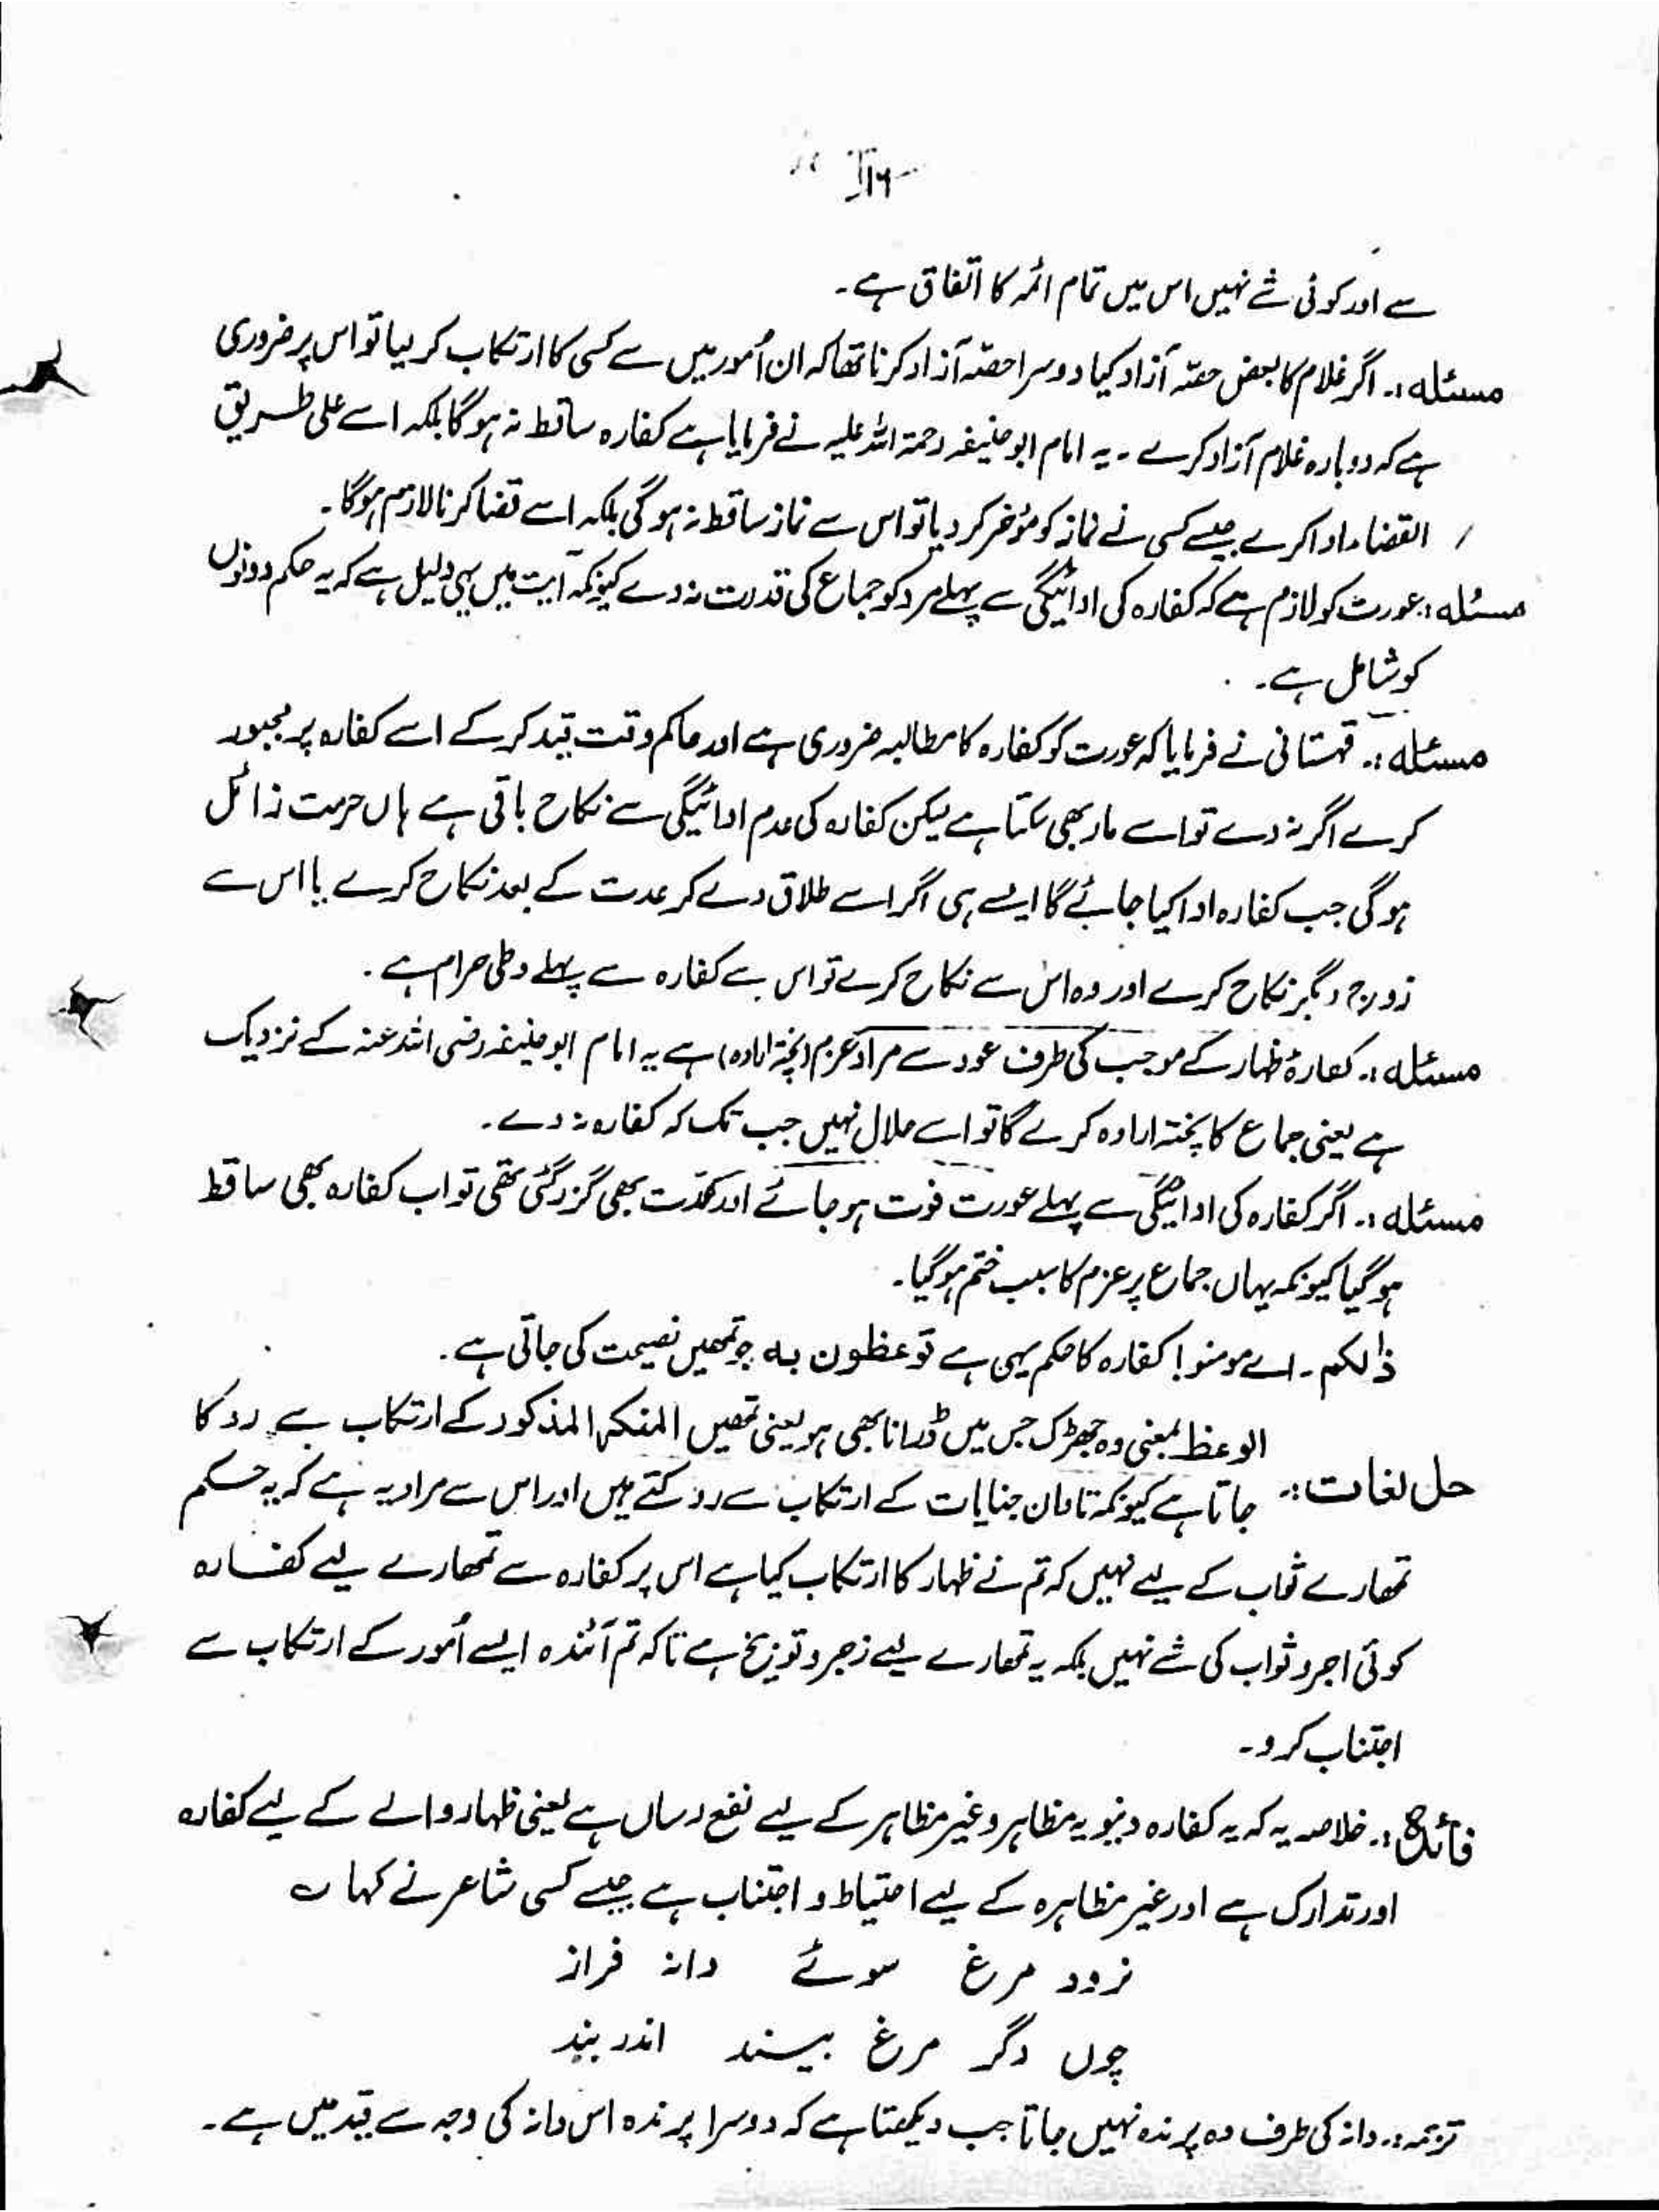 ۱۱۶
سے اور کوئی شے نہیں اس میں تمام ائمہ کا اتفاق ہے۔
مسئلہ :۔ اگر غلام کا بعض حصّہ آزاد کیا دوسرا حصّہ آزاد کرنا تھا کہ ان اُمور میں سے کسی کا ارتکاب کر لیا تو اس پر ضروری
ہے کہ دوبارہ غلام آزاد کرے ۔ یہ امام ابوحنیفہ رحمۃ اللہ علیہ نے فرمایا ہے کفارہ ساقط نہ ہوگا بلکہ اسے علی طریق
القضاء ادا کرے جیسے کسی نے نماز کو مؤخر کر دیا تو اس سے نماز ساقط نہ ہوگی بلکہ اسے قضا کرنا لازم ہوگا۔
مسئلہ :۔ عورت کو لازم ہے کہ کفارہ کی ادائیگی سے پہلے مرد کو جماع کی قدرت نہ دے کیونکہ آیت میں یہی دلیل ہے کہ یہ حکم دونوں
کو شامل ہے۔
مسئلہ :۔ قہستانی نے فرمایا کہ عورت کو کفارہ کا مطالبہ ضروری ہے اور حاکم وقت قید کر کے اسے کفارہ پر مجبور
کرے اگر نہ دے تو اسے مار بھی سکتا ہے لیکن کفارہ کی عدم ادائیگی سے نکاح باقی ہے ہاں حرمت زائل
ہوگی جب کفارہ ادا کیا جائے گا ایسے ہی اگر اسے طلاق دے کر عدت کے بعد نکاح کرے یا اس سے
زوج دیگر نکاح کرے اور وہ اس سے نکاح کرے تو اس سے کفارہ سے پہلے وطی حرام ہے۔
مسئلہ :۔ کفارۂ ظہار کے موجب کی طرف عود سے مراد عزم (پختہ ارادہ) ہے یہ امام ابوحنیفہ رضی اللہ عنہ کے نزدیک
ہے یعنی جماع کا پختہ ارادہ کرے گا تو اسے حلال نہیں جب تک کہ کفارہ نہ دے۔
مسئلہ :۔ اگر کفارہ کی ادائیگی سے پہلے عورت فوت ہو جائے اور مدّت بھی گزر گئی تھی تو اب کفارہ بھی ساقط
ہو گیا کیونکہ یہاں جماع پر عزم کا سبب ختم ہوگیا۔
ذالکم ۔ اے مومنو! کفارہ کا حکم یہی ہے توعظون بہ جو تمھیں نصیحت کی جاتی ہے۔
الوعظ بمعنی وہ جھڑک جس میں ڈرانا بھی ہو یعنی تمھیں المنکر المذکور کے ارتکاب سے روکا
حل لغات :۔ جاتا ہے کیونکہ تاوان جنایات کے ارتکاب سے روکتے ہیں اور اس سے مراد یہ ہے کہ یہ حکم
تمھارے ثواب کے لیے نہیں کہ تم نے ظہار کا ارتکاب کیا ہے اس پر کفارہ سے تمھارے لیے کفارہ
کوئی اجر و ثواب کی شے نہیں بلکہ یہ تمھارے لیے زجر و توبیخ ہے تاکہ تم آئندہ ایسے اُمور کے ارتکاب سے
اجتناب کرو۔
فائدہ :۔ خلاصہ یہ کہ یہ کفارہ دنیویہ مظاہر و غیر مظاہر کے لیے نفع رساں ہے یعنی ظہار والے کے لیے کفارہ
اور تدارک ہے اور غیر مظاہرہ کے لیے احتیاط و اجتناب ہے جیسے کسی شاعر نے کہا ؎
نرود مرغ سوئے دانہ فراز
چوں دگر مرغ بیند اندر بند
ترجمہ :۔ دانہ کی طرف وہ پرندہ نہیں جاتا جب دیکھتا ہے کہ دوسرا پرندہ اس دانہ کی وجہ سے قید میں ہے۔